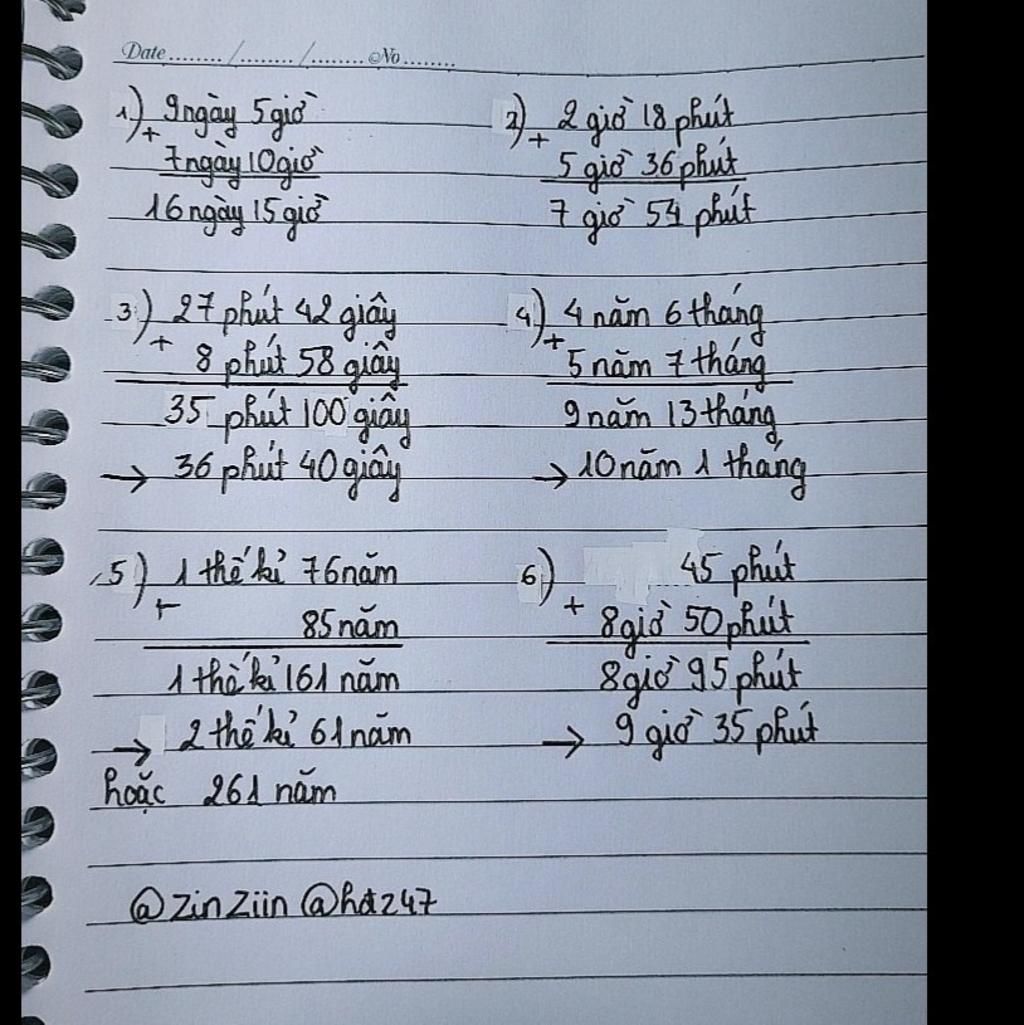 Date......../......../........No........
1) 9 ngày 5 giờ
+
7 ngày 10 giờ
16 ngày 15 giờ
2) 2 giờ 18 phút
+
5 giờ 36 phút
7 giờ 54 phút
3) 27 phút 42 giây
+
8 phút 58 giây
35 phút 100 giây
→ 36 phút 40 giây
4) 4 năm 6 tháng
+
5 năm 7 tháng
9 năm 13 tháng
→ 10 năm 1 tháng
5) 1 thế kỉ 76 năm
+
85 năm
1 thế kỉ 161 năm
→ 2 thế kỉ 61 năm
hoặc 261 năm
6) 45 phút
+
8 giờ 50 phút
8 giờ 95 phút
→ 9 giờ 35 phút
@ZinZiin @hdz247